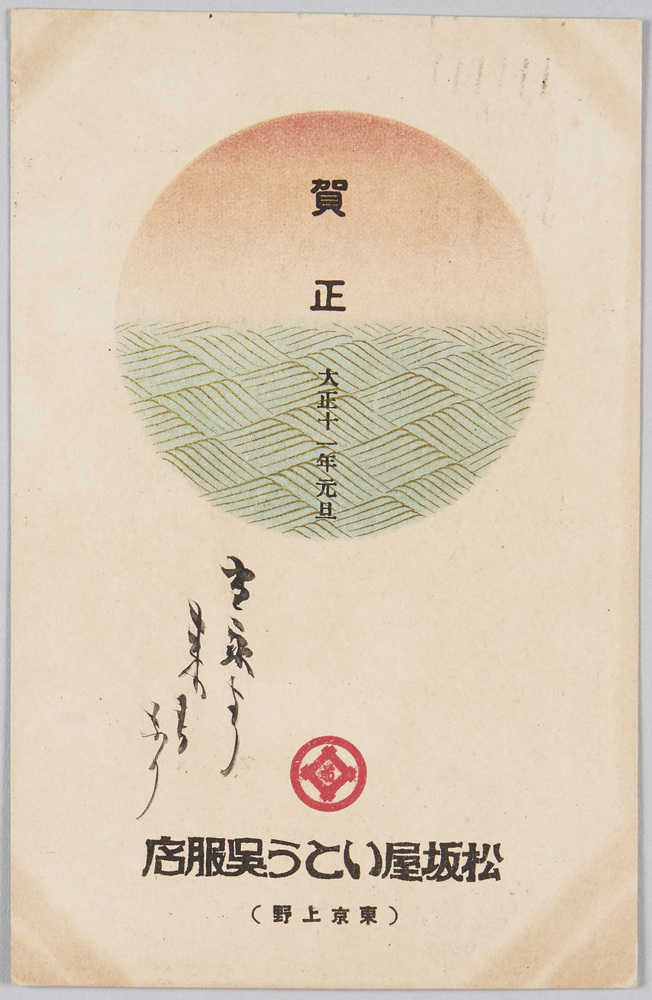 賀正
大正十一年元旦
松坂屋いとう呉服店
（東京上野）